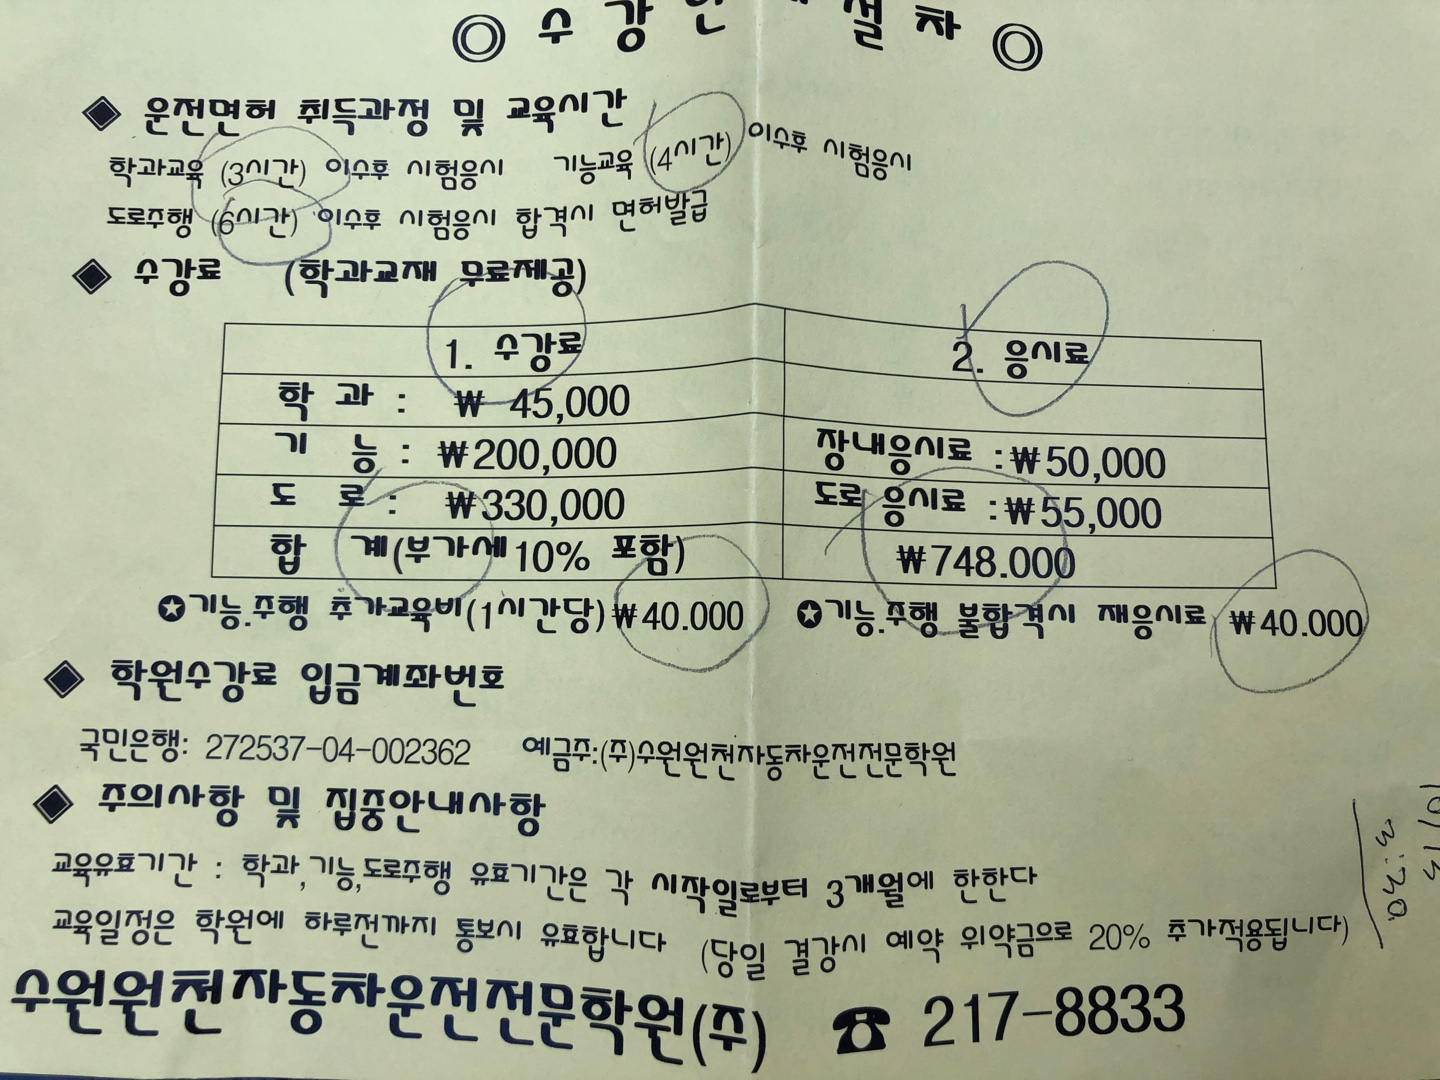 ◎ 수 강 안 내 절 차 ◎
◈ 운전면허 취득과정 및 교육시간
학과교육 (3시간) 이수후 시험응시 기능교육 (4시간) 이수후 시험응시
도로주행 (6시간) 이수후 시험응시 합격시 면허발급
◈ 수강료 (학과교재 무료제공)
1. 수강료 2. 응시료
학 과 : ₩ 45,000
기 능 : ₩200,000 장내응시료 :₩50,000
도 로 : ₩330,000 도로 응시료 :₩55,000
합 계(부가세10% 포함) ₩748.000
✪기능.주행 추가교육비(1시간당)₩40.000 ✪기능.주행 불합격시 재응시료 ₩40.000
◈ 학원수강료 입금계좌번호
국민은행: 272537-04-002362 예금주:(주)수원원천자동차운전전문학원
◈ 주의사항 및 집중안내사항
교육유효기간 : 학과,기능,도로주행 유효기간은 각 시작일로부터 3개월에 한한다
교육일정은 학원에 하루전까지 통보시 유효합니다 (당일 결강시 예약 위약금으로 20% 추가적용됩니다)
수원원천자동차운전전문학원(주) ☎ 217-8833
10/13
3:30